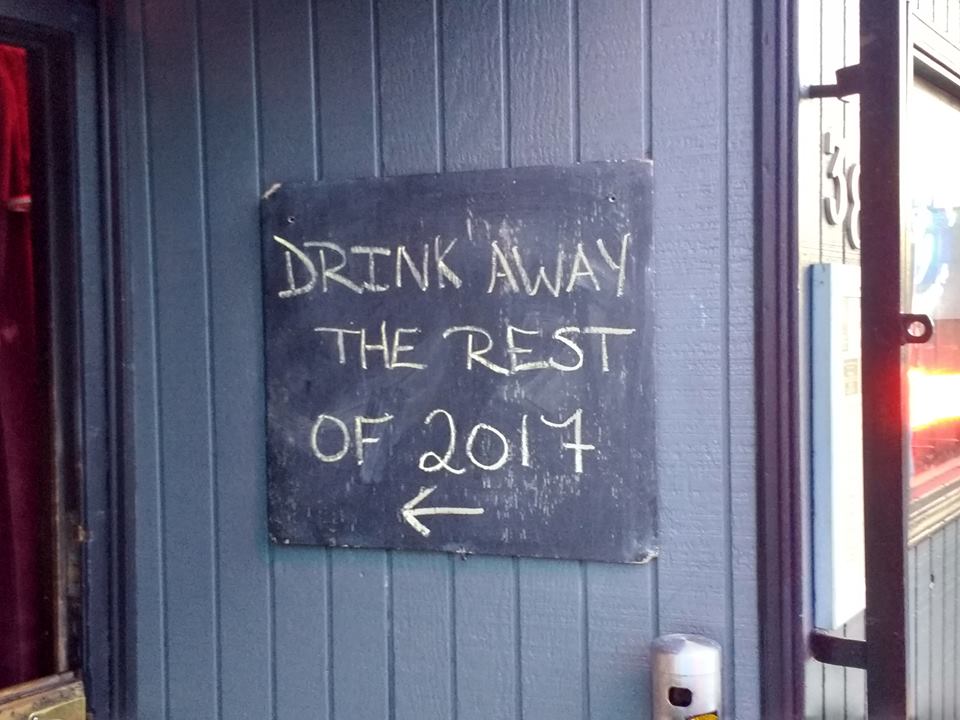 DRINK AWAY
THE REST
OF 2017
←
38